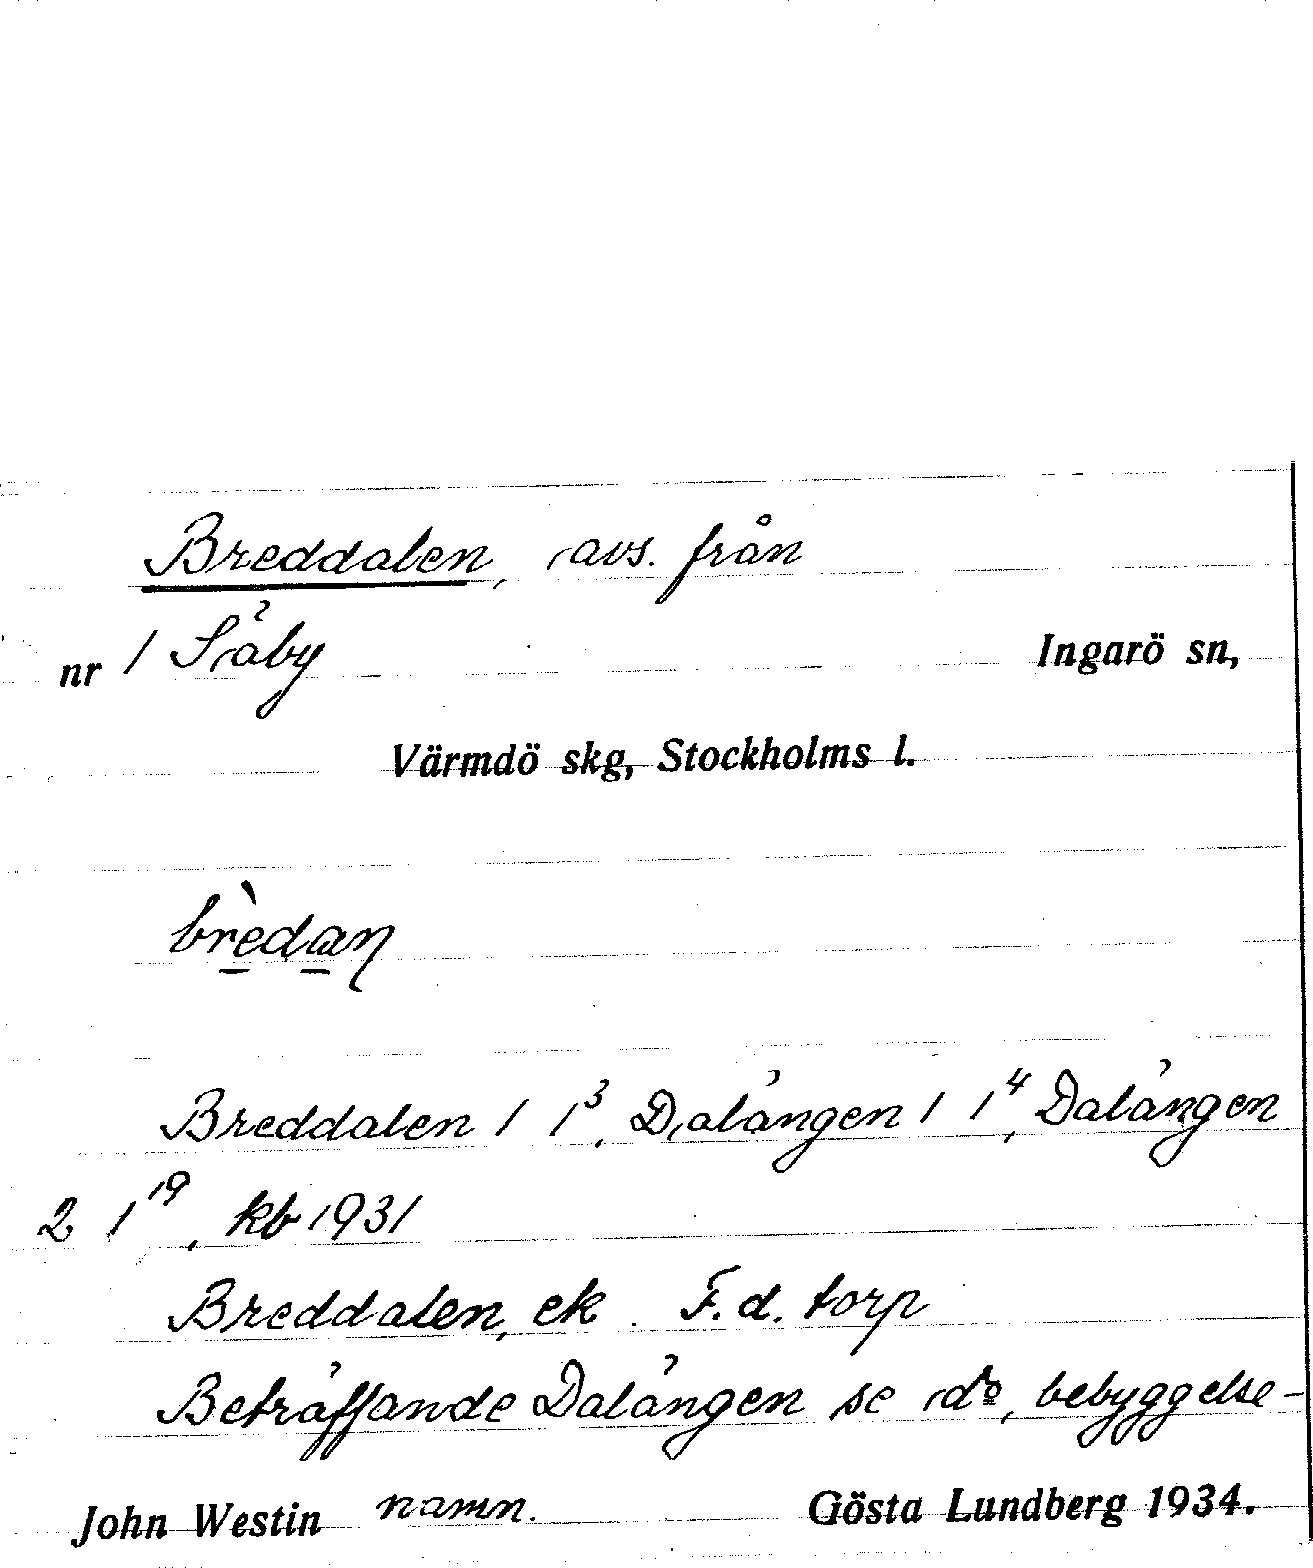 Breddalen, avs. från
nr 1 Säby Ingarö sn,
Värmdö skg, Stockholms l.
brèdan
Breddalen 1 1³, Dalängen 1 1⁴, Dalängen
2 1¹⁹, kb 1931
Breddalen, ek. F.d. torp
Beträffande Dalängen se dº, bebyggelse-
John Westin namn. Gösta Lundberg 1934.